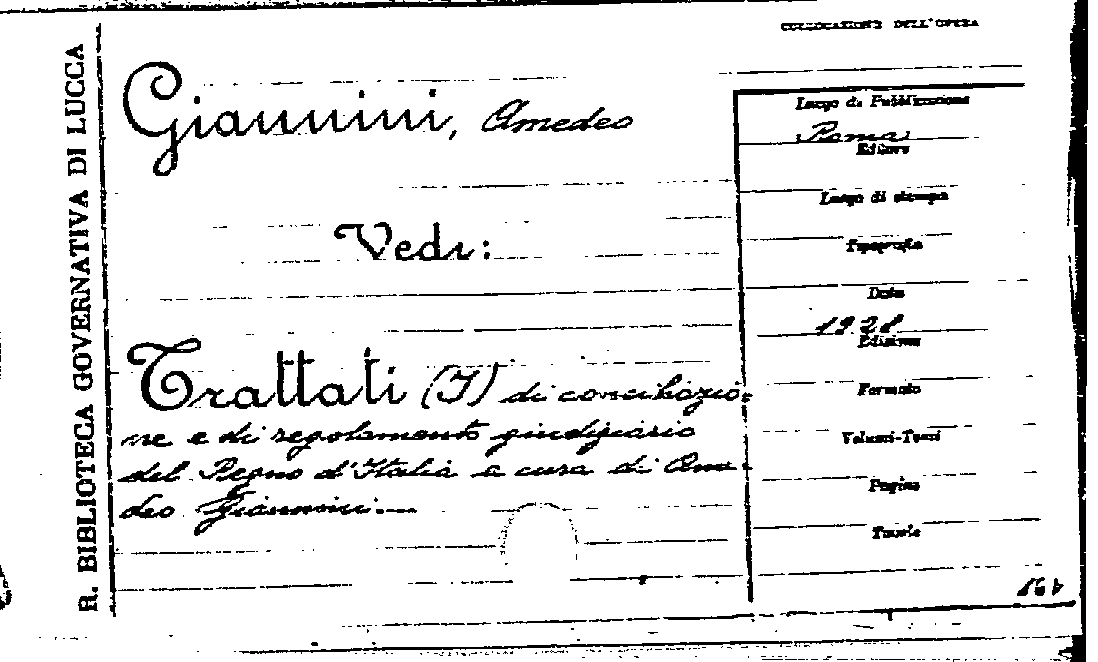 R. BIBLIOTECA GOVERNATIVA DI LUCCA
COLLOCAZIONE DELL'OPERA
Giannini, Amedeo
Vedi:
Trattati (I) di conciliazio-
ne e di regolamento giudiziario
del Regno d'Italia a cura di Ame-
deo Giannini.—
Luogo di Pubblicazione
Roma
Editore
Luogo di stampa
Tipografia
Data
1928
Edizione
Formato
Volumi-Tomi
Pagine
Tavole